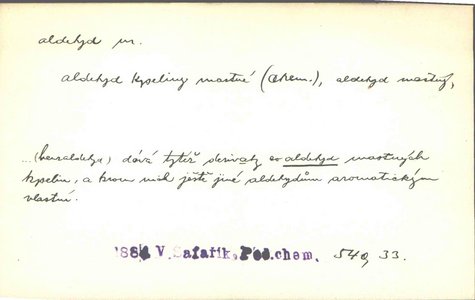 aldehyd m.
aldehyd kyseliny mastné (chem.), aldehyd mastný,
...(benzaldehyd) dává tytéž derivaty co aldehyd mastných
kyselin, a krom nich ještě jiné aldehydům aromatickým
vlastní.
188 V.Šafařík, Poč.chem. 540, 33.